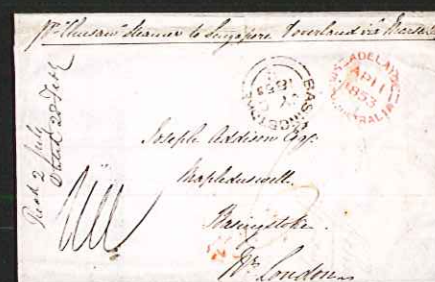 Pr "Chusan" Steamer to Singapore & overland viâ Marseil
ADELAIDE
AP 11
1853
AUSTRALIA
BASINGSTOKE
1853
Joseph Addison Esqr
Mapledurwell
Basingstoke
Nr London
Recd 2 July